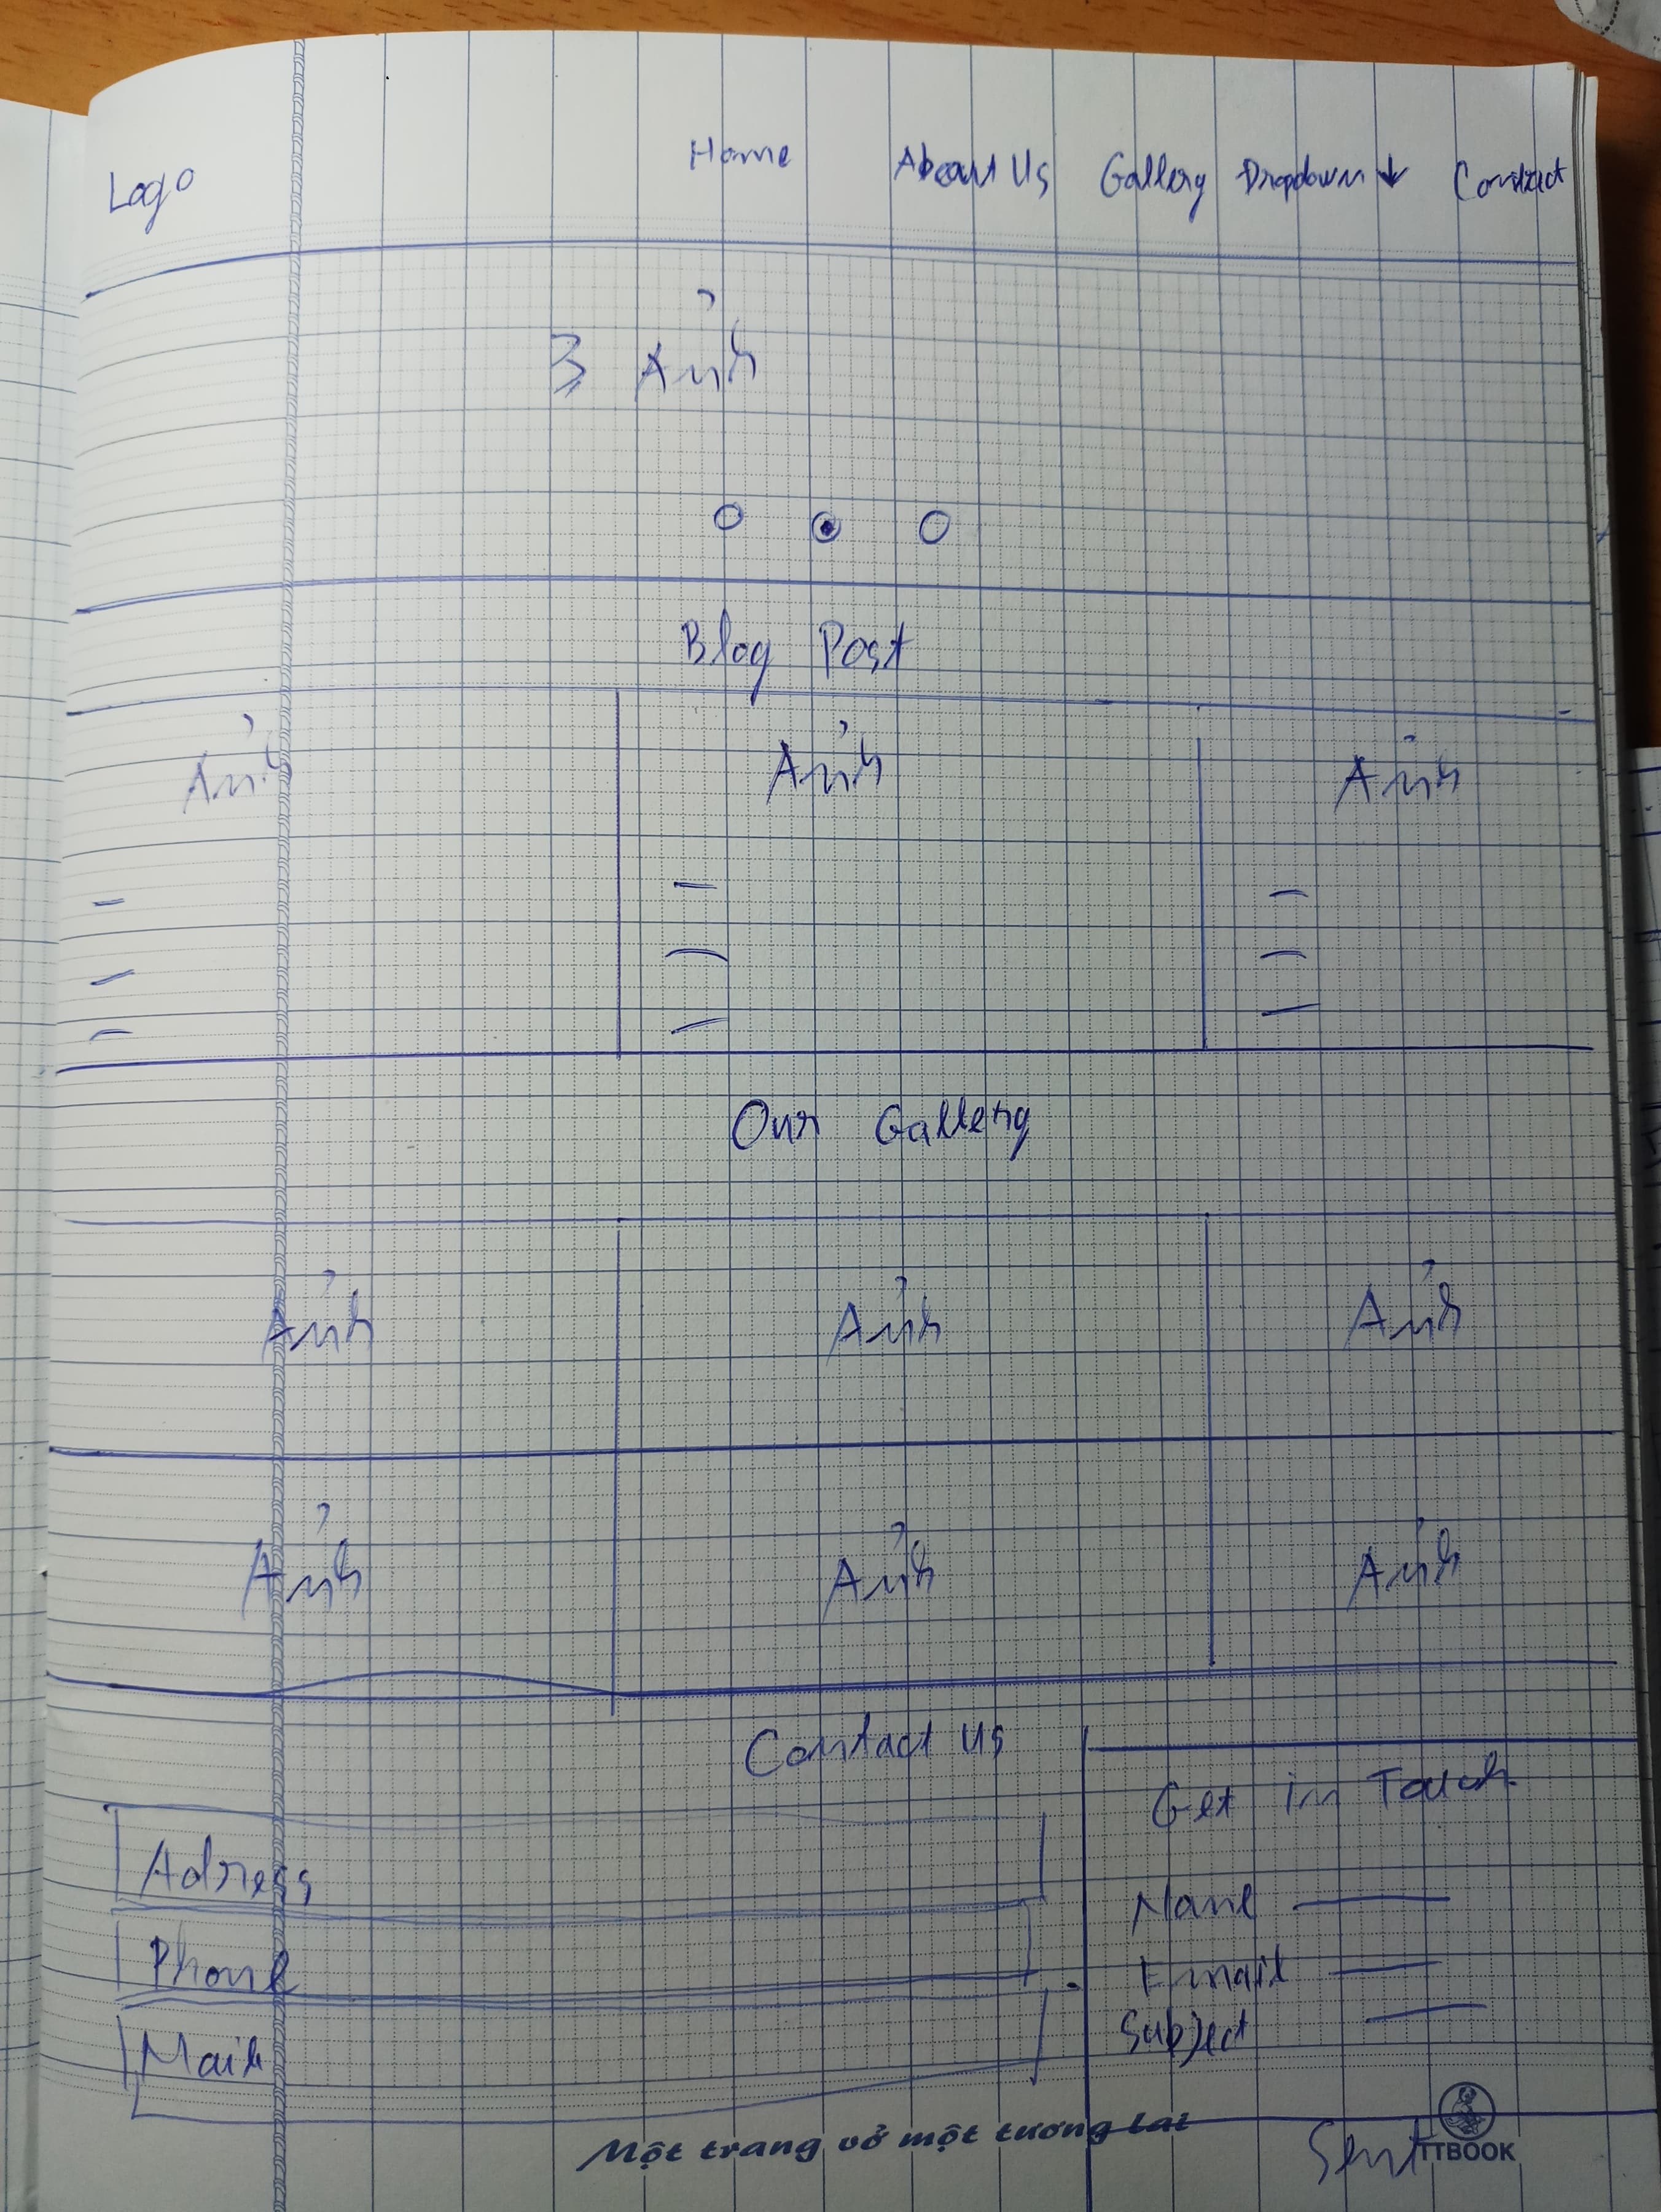 Logo Home About Us Gallery Dropdown ↓ Contact
3 Ảnh
Blog Post
Ảnh Ảnh Ảnh
Our Gallery
Ảnh Ảnh Ảnh
Ảnh Ảnh Ảnh
Contact Us
Get in Touch
Adress
Name
Phone
Email
Subject
Mail
Một trang vở một tương lai
Sent
TTBOOK